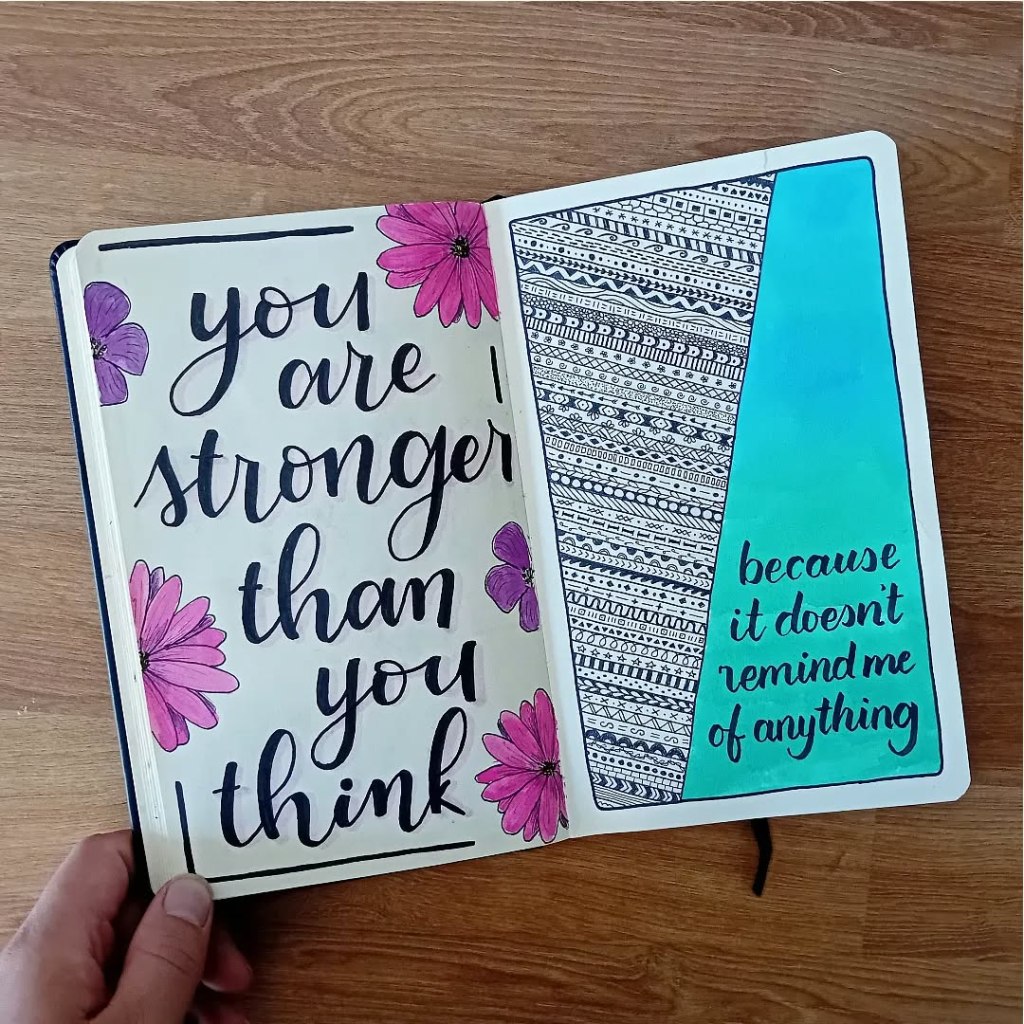 you
are
stronger
than
you
think
because
it doesn't
remind me
of anything